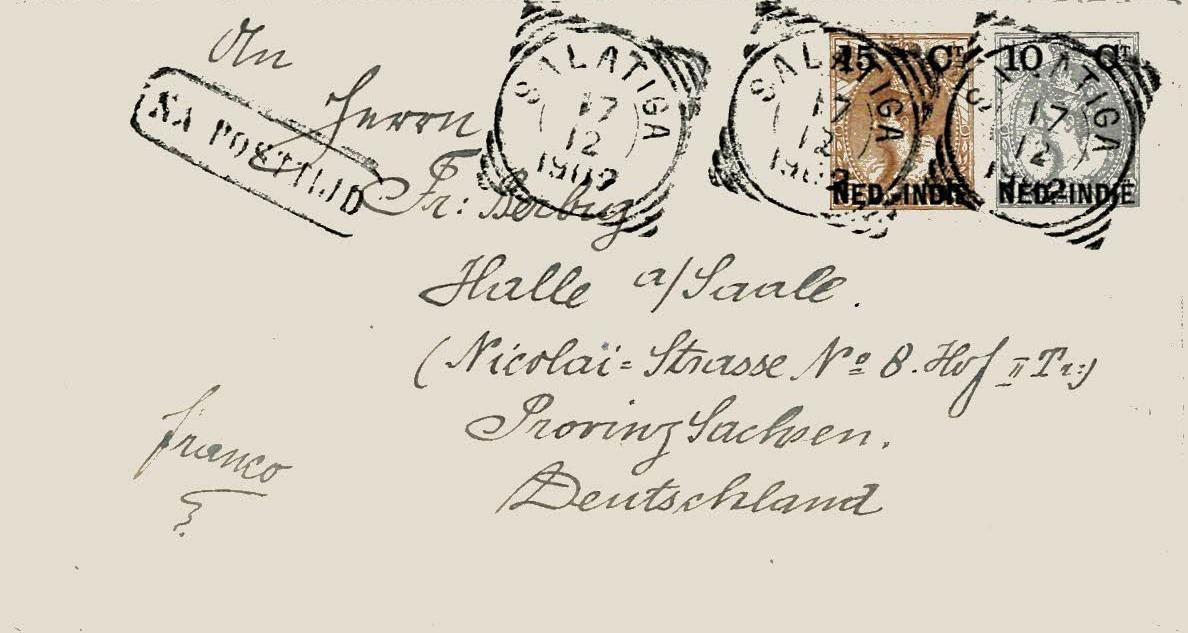 An
Herrn
Fr: Berbig
Halle a/Saale.
(Nicolai=Strasse No 8. Hof II Tr:)
Provinz Sachsen.
Deutschland
franco
NA POSTTIJD
SALATIGA
17
12
1902
SALATIGA
17
12
1902
SALATIGA
17
12
15 CT
NED.-INDIË
10 CT
NED.-INDIË